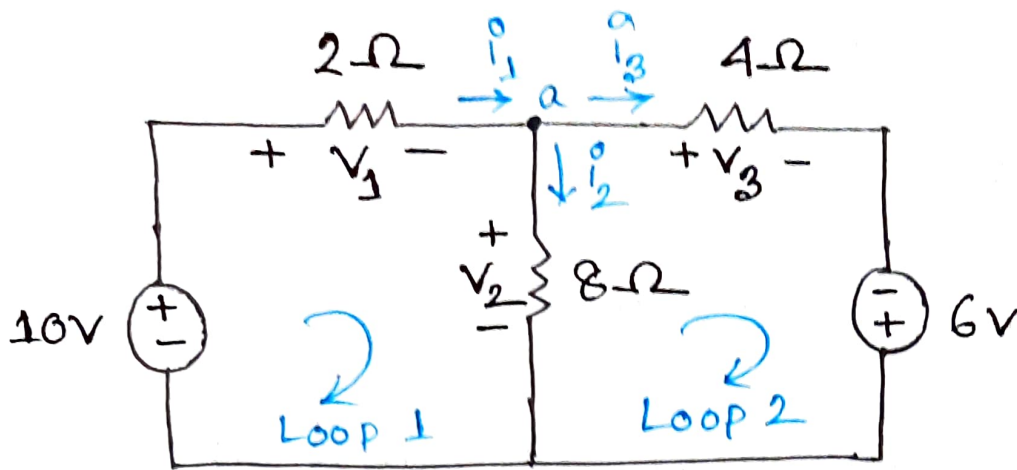 2Ω i₁ i₃ 4Ω
a
+ V₁ − + V₃ −
i₂
+
V₂ 8Ω
−
10V + − − + 6V
Loop 1 Loop 2